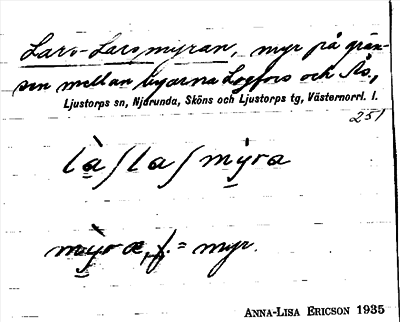 Lars-Larsmyran, myr på grän-
sen mellan byarna Logfors och Ås,
Ljustorps sn, Njurunda, Sköns och Ljustorps tg, Västernorrl. l.
251
là/la/mỳra
mỳræ, f. = myr.
ANNA-LISA ERICSON 1935